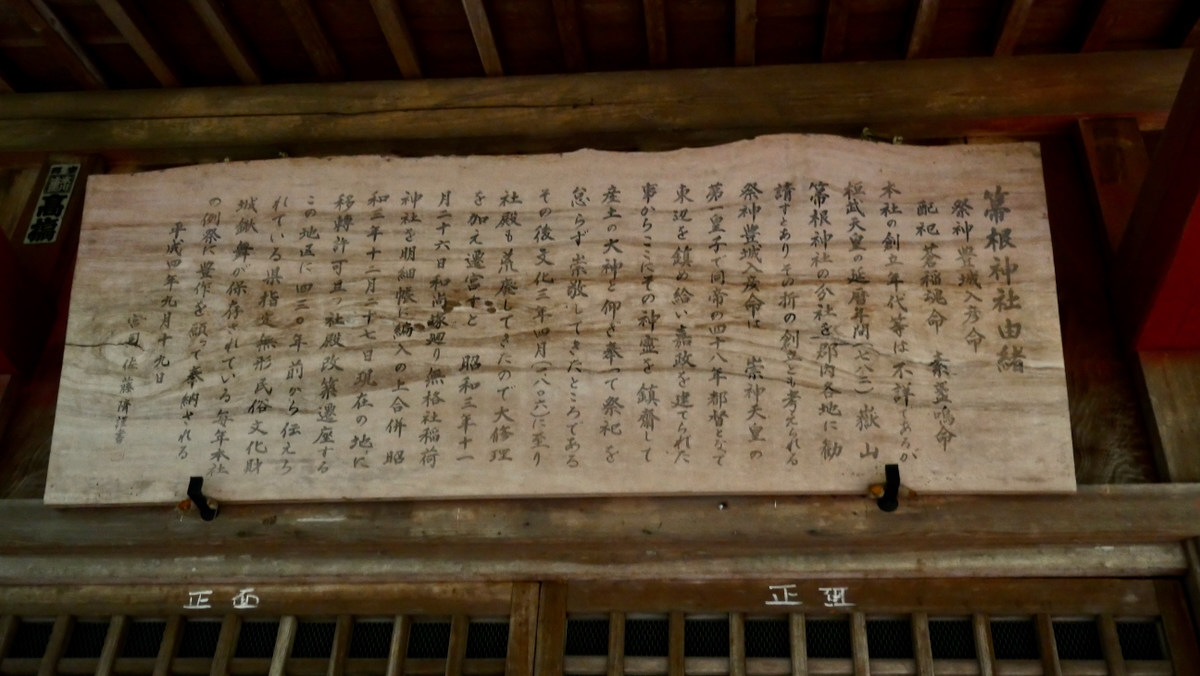 箒根神社由緒
祭神 豊城入彦命
配祀 蒼稲魂命 素盞嗚命
本社の創立年代等は不詳であるが
桓武天皇の延暦年間(七八二)嶽山
箒根神社の分社を郡内各地に勧
請すありその折の創きとも考えられる
祭神豊城入彦命は 崇神天皇の
第一皇子で同帝の四十八年都督となって
東辺を鎮め給い嘉政を建てられた
事からここにその神霊を鎮齋して
産土の大神と仰ぎ奉って祭祀を
怠らず崇敬してきたところである
その後文化三年四月(一八〇六)に至り
社殿も荒廃してきたので大修理
を加え遷宮すと 昭和三年十一
月二十六日和尚塚廻り無格社稲荷
神社を明細帳に編入の上合併 昭
和三年十二月二十七日現在の地に
移轉許可且つ社殿改築遷座する
この地区に四三〇年前から伝えら
れている県指定無形民俗文化財
城鍬舞が保存されている毎年本社
の例祭に豊作を願って奉納される
平成四年九月十九日
宮司 佐藤 書
高橋
正面
正面